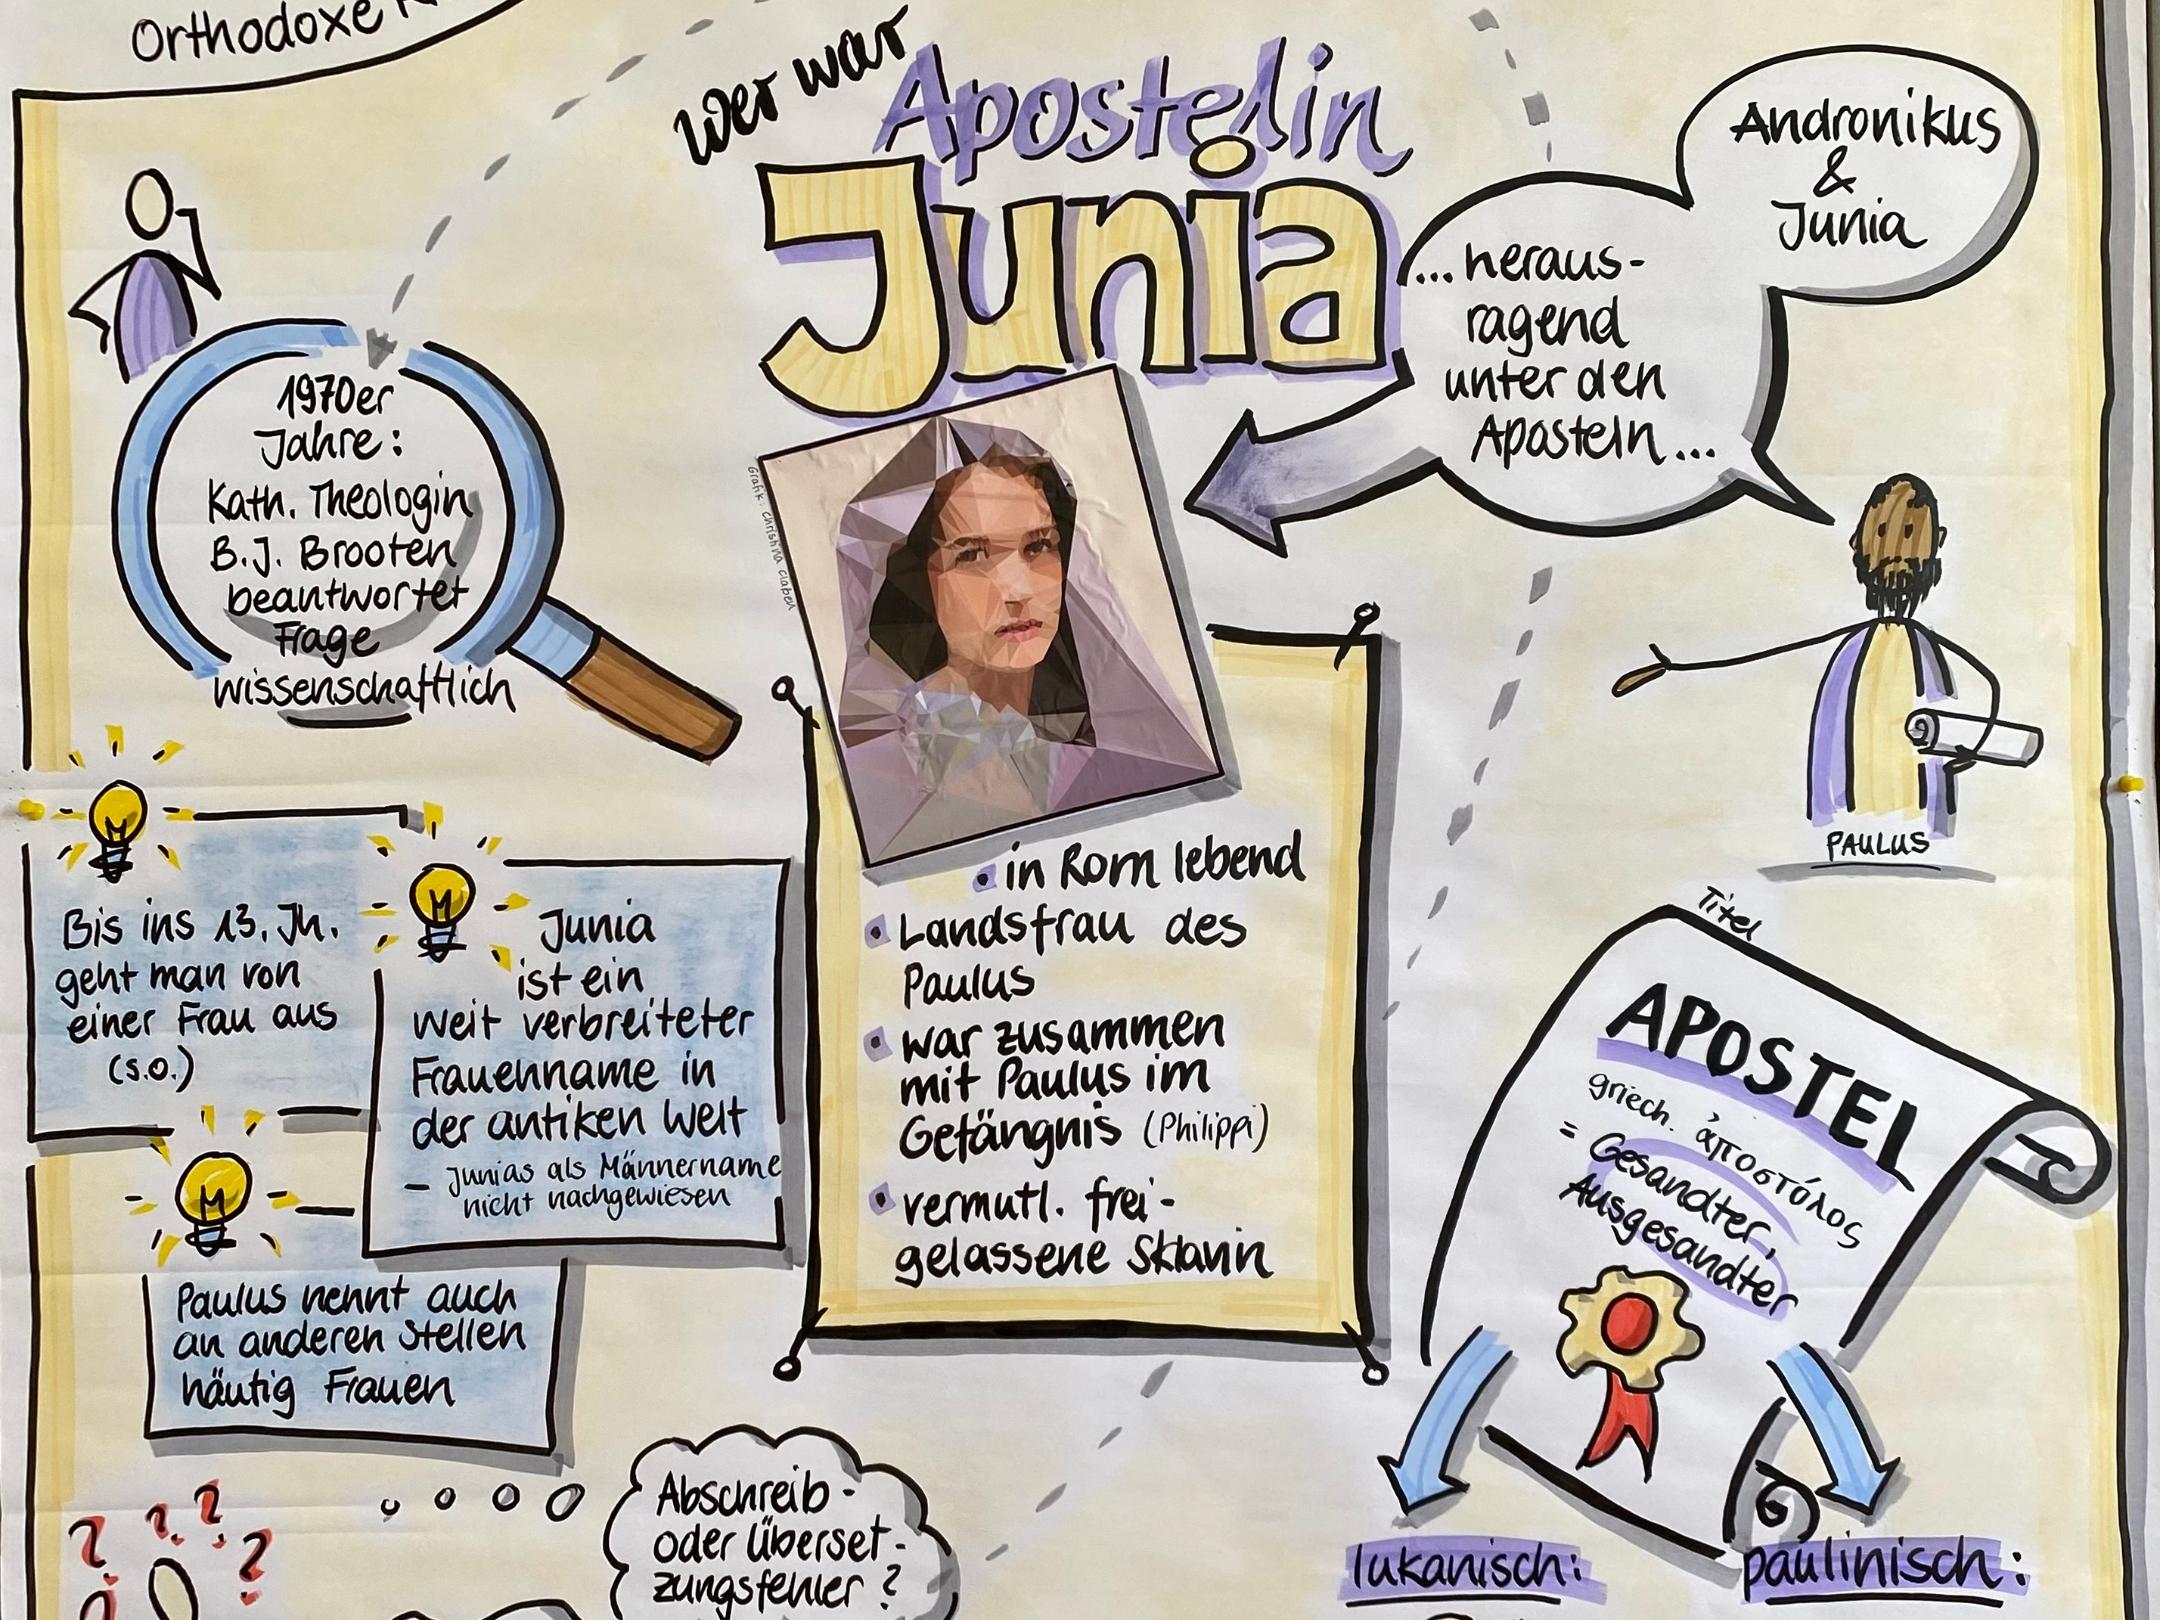 Orthodoxe
wer war
Apostelin
Junia
Andronikus
&
Junia
...heraus-
ragend
unter den
Aposteln...
PAULUS
1970er
Jahre:
Kath. Theologin
B.J. Brooten
beantwortet
Frage
wissenschaftlich
Grafik: Christina Claßen
Bis ins 13. Jh.
geht man von
einer Frau aus
(s.o.)
Junia
ist ein
weit verbreiteter
Frauenname in
der antiken Welt
- Junias als Männername
nicht nachgewiesen
Paulus nennt auch
an anderen Stellen
häufig Frauen
• in Rom lebend
• Landsfrau des
Paulus
• war zusammen
mit Paulus im
Gefängnis (Philippi)
• vermutl. frei-
gelassene Sklavin
Titel
APOSTEL
griech. ἀποστόλος
= Gesandter,
Ausgesandter
lukanisch:
paulinisch:
? ? ? ?
Abschreib-
oder Überset-
zungsfehler?